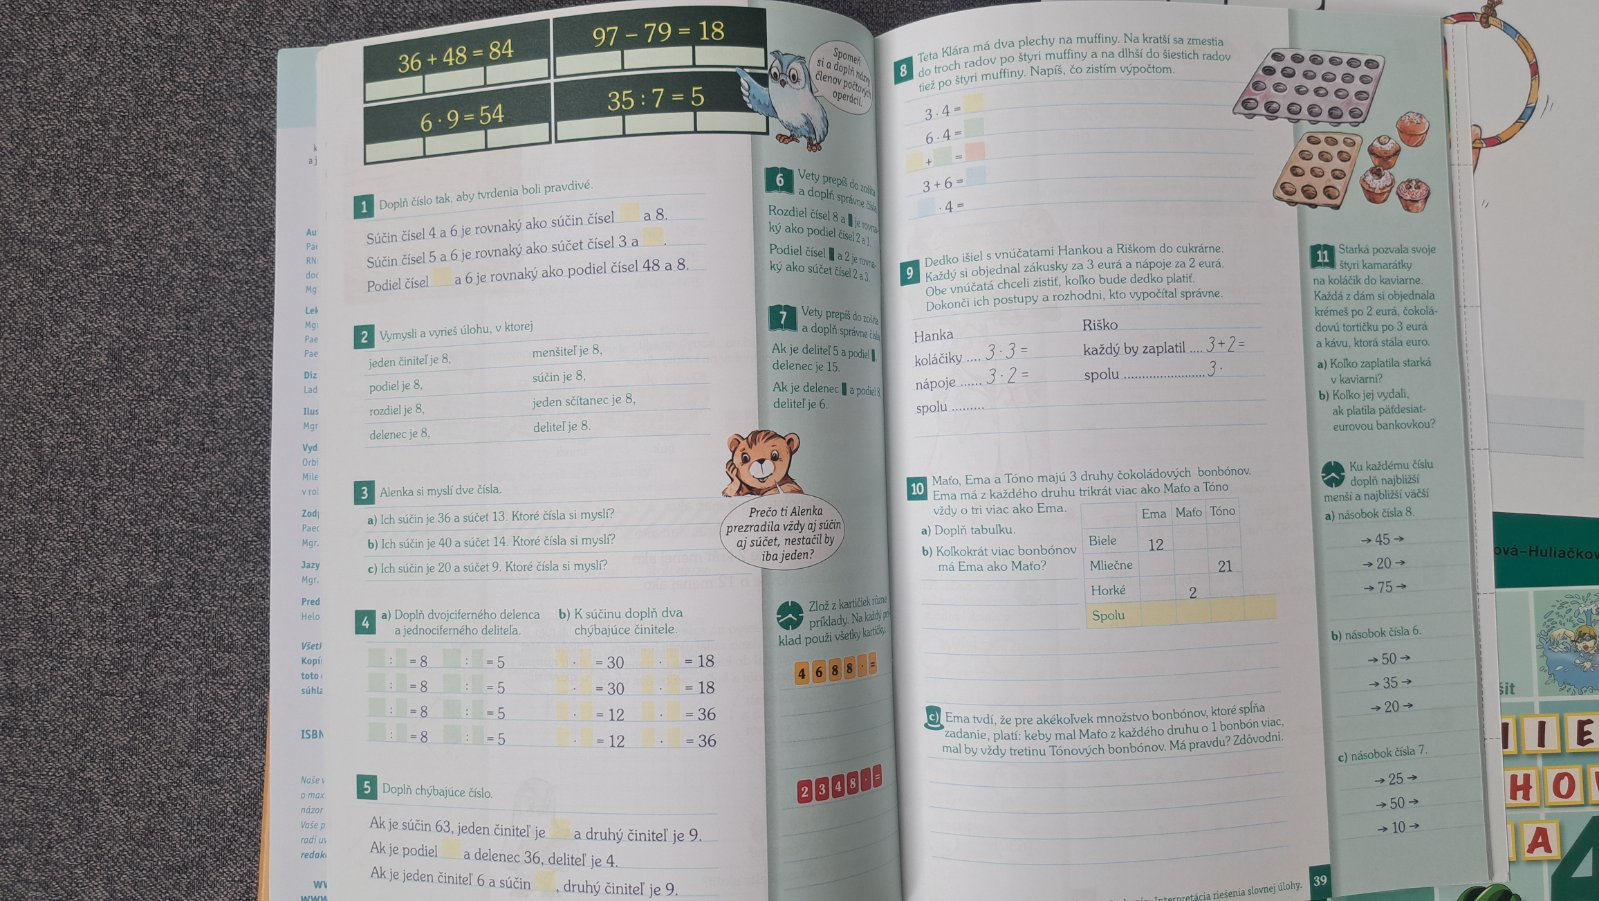 36 + 48 = 84
97 − 79 = 18
6 · 9 = 54
35 : 7 = 5
Spomeň
si a doplň názvy
členov počtových
operácií.
1 Doplň číslo tak, aby tvrdenia boli pravdivé.
Súčin čísel 4 a 6 je rovnaký ako súčin čísel a 8.
Súčin čísel 5 a 6 je rovnaký ako súčet čísel 3 a .
Podiel čísel a 6 je rovnaký ako podiel čísel 48 a 8.
2 Vymysli a vyrieš úlohu, v ktorej
jeden činiteľ je 8, menšiteľ je 8,
podiel je 8, súčin je 8,
rozdiel je 8, jeden sčítanec je 8,
delenec je 8, deliteľ je 8.
3 Alenka si myslí dve čísla.
a) Ich súčin je 36 a súčet 13. Ktoré čísla si myslí?
b) Ich súčin je 40 a súčet 14. Ktoré čísla si myslí?
c) Ich súčin je 20 a súčet 9. Ktoré čísla si myslí?
Prečo ti Alenka
prezradila vždy aj súčin
aj súčet, nestačil by
iba jeden?
4 a) Doplň dvojciferného delenca
a jednociferného deliteľa.
b) K súčinu doplň dva
chýbajúce činitele.
: = 8 : = 5 · = 30 · = 18
: = 8 : = 5 · = 30 · = 18
: = 8 : = 5 · = 12 · = 36
: = 8 : = 5 · = 12 · = 36
5 Doplň chýbajúce číslo.
Ak je súčin 63, jeden činiteľ je a druhý činiteľ je 9.
Ak je podiel a delenec 36, deliteľ je 4.
Ak je jeden činiteľ 6 a súčin , druhý činiteľ je 9.
6 Vety prepíš do zošita
a doplň správne čísla
Rozdiel čísel 8 a je rovna-
ký ako podiel čísel 2 a 1.
Podiel čísel a 2 je rovna-
ký ako súčet čísel 2 a 3.
7 Vety prepíš do zošita
a doplň správne čísla
Ak je deliteľ 5 a podiel
delenec je 15.
Ak je delenec a podiel 8,
deliteľ je 6.
Zlož z kartičiek rôzne
príklady. Na každý prí-
klad použi všetky kartičky.
4 6 8 8 · =
2 3 4 8 · =
8 Teta Klára má dva plechy na muffiny. Na kratší sa zmestia
do troch radov po štyri muffiny a na dlhší do šiestich radov
tiež po štyri muffiny. Napíš, čo zistím výpočtom.
3 · 4 =
6 · 4 =
+ =
3 + 6 =
· 4 =
9 Dedko išiel s vnúčatami Hankou a Riškom do cukrárne.
Každý si objednal zákusky za 3 eurá a nápoje za 2 eurá.
Obe vnúčatá chceli zistiť, koľko bude dedko platiť.
Dokonči ich postupy a rozhodni, kto vypočítal správne.
Hanka Riško
koláčiky .... 3 · 3 = každý by zaplatil .... 3+2=
nápoje ...... 3 · 2 = spolu ........................ 3 ·
spolu .........
10 Maťo, Ema a Tóno majú 3 druhy čokoládových bonbónov.
Ema má z každého druhu trikrát viac ako Maťo a Tóno
vždy o tri viac ako Ema.
a) Doplň tabuľku.
b) Koľkokrát viac bonbónov
má Ema ako Maťo?
Ema Maťo Tóno
Biele 12
Mliečne 21
Horké 2
Spolu
c) Ema tvdí, že pre akékoľvek množstvo bonbónov, ktoré spĺňa
zadanie, platí: keby mal Maťo z každého druhu o 1 bonbón viac,
mal by vždy tretinu Tónových bonbónov. Má pravdu? Zdôvodni.
Interpretácia riešenia slovnej úlohy. 39
11 Starká pozvala svoje
štyri kamarátky
na koláčik do kaviarne.
Každá z dám si objednala
krémeš po 2 eurá, čokolá-
dovú tortičku po 3 eurá
a kávu, ktorá stála euro.
a) Koľko zaplatila starká
v kaviarni?
b) Koľko jej vydali,
ak platila päťdesiat-
eurovou bankovkou?
Ku každému číslu
doplň najbližší
menší a najbližší väčší
a) násobok čísla 8.
→ 45 →
→ 20 →
→ 75 →
b) násobok čísla 6.
→ 50 →
→ 35 →
→ 20 →
c) násobok čísla 7.
→ 25 →
→ 50 →
→ 10 →
Au
RN
Mg
Lek
Diz
Lad
Ilus
Mgr
Vyd
Orbi
Mile
Paec
Mgr.
Jazy
Mgr.
Pred
Helo
Všetl
Kopí
toto
súhla
ISBN
Naše v
o max
názor
Vaše p
radi uv
redak
WV
www
ová–Huliačkov
šit
I E
H O
A
4